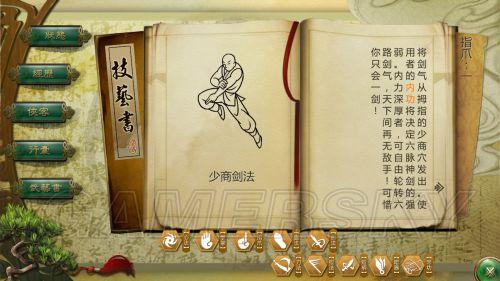 狀態
經歷
俠客
行囊
技藝書
技藝書
少商剑法
指爪：一
将剑气从拇指的少商穴发出。使
用者的内功将决定六脉神剑的强
弱。内力深厚者，可自由轮转六
路剑气，天下间再无敌手！可惜
你只会一剑！
GAMERSKY